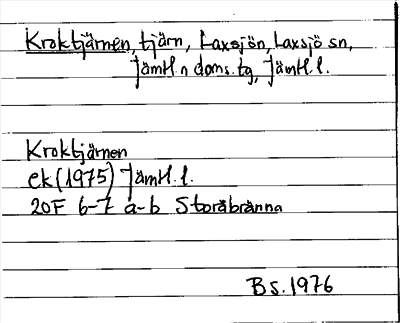 Kroktjärnen, tjärn, Laxsjön, Laxsjö sn,
Jämtl. n doms. tg, Jämtl. l.
Kroktjärnen
ek (1975) Jämtl. l.
20F 6-7 a-b Storåbränna
BS. 1976